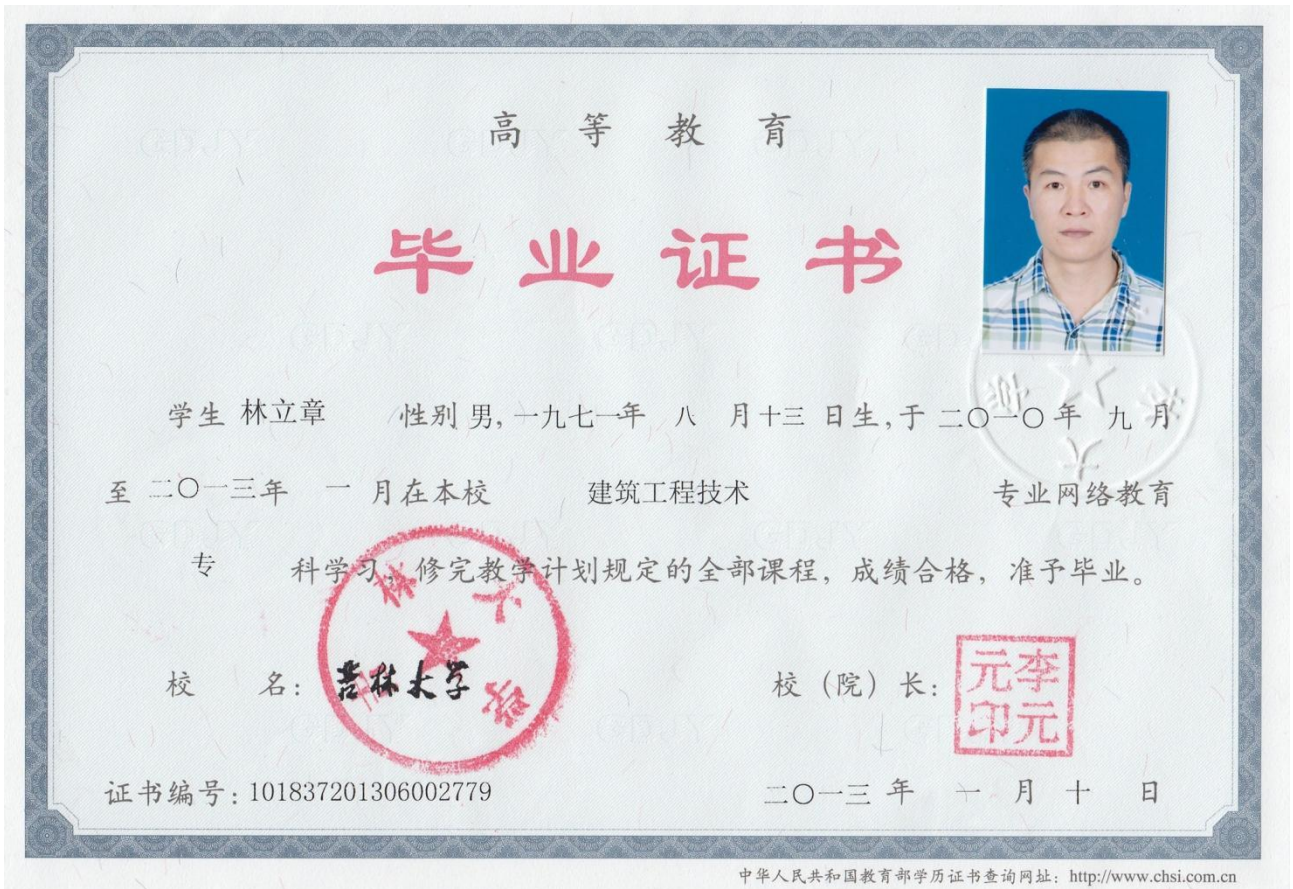 高等教育
毕业证书
学生 林立章 性别 男, 一九七一年 八 月十三 日生, 于 二〇一〇 年 九 月
至 二〇一三年 一 月在本校 建筑工程技术 专业网络教育
专 科学习, 修完教学计划规定的全部课程, 成绩合格, 准予毕业。
校 名: 吉林大学 校 (院) 长: 李元元印
吉林大学
吉林大学
证书编号: 101837201306002779 二〇一三 年 一 月 十 日
中华人民共和国教育部学历证书查询网址: http://www.chsi.com.cn